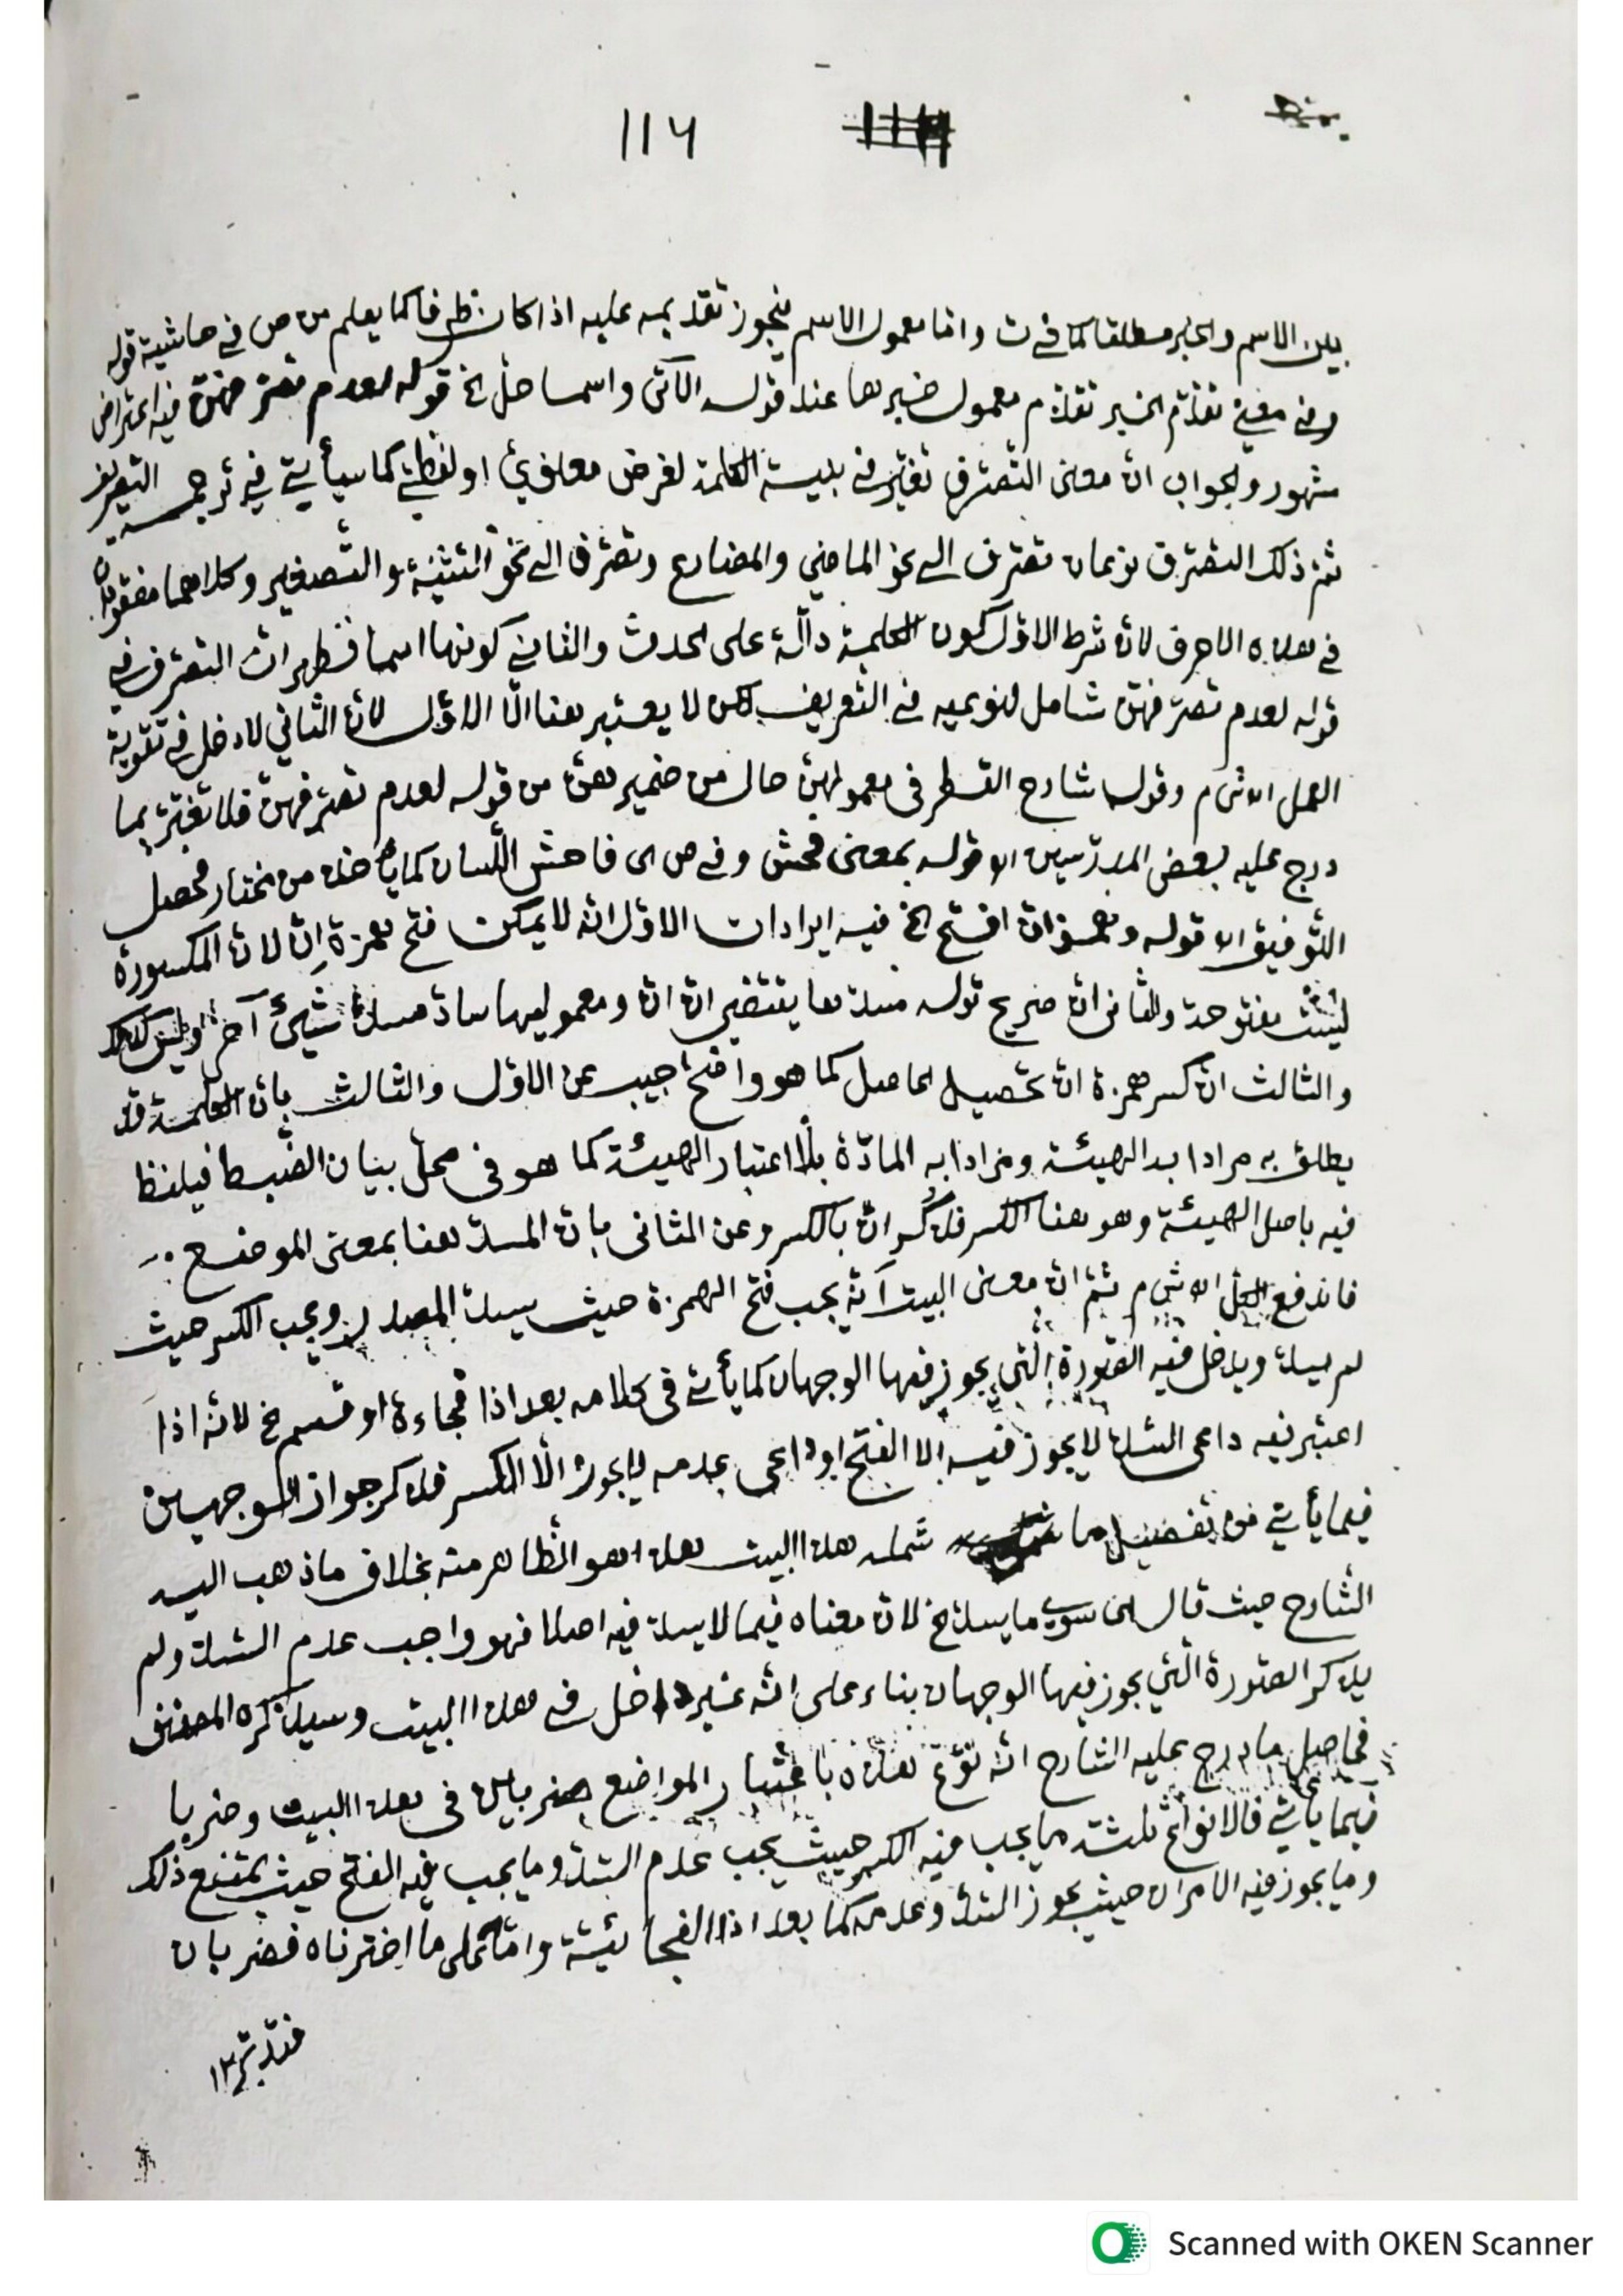 ١١٦
بين الاسم والخبر مطلقا كما في ت واما معمول الاسم فيجوز تقديمه عليه اذا كان ظرفا كما يعلم من ص في حاشية قوله
وفي معنى تقدّم الخبر تقدّم معمول خبرها عند قوله الآتى واسما حلّ الخ قوله لعدم تصرّفهنّ فيه اعتراض
مشهور والجواب انّ معنى التّصرّف تغيّر في بنية الكلمة لغرض معنويّ او لفظيّ كما سيأتي في ترجمة التعريف
ثمّ ذلك التصرّف نوعان تصرّف الى نحو الماضي والمضارع وتصرّف الى نحو التثنية والتّصغير وكلاهما مفقودان
في هذه الاحرف لانّ شرط الاوّل كون الكلمة دالّة على الحدث والثاني كونها اسما فظهر انّ التصرّف في
قوله لعدم تصرّفهنّ شامل لنوعيه في التّعريف لكن لا يعتبر هنا الّا الاوّل لانّ الثاني لا دخل في تقوية
العمل اﻫ ش م وقول شارح القطر في معمولهنّ حال من ضمير هنّ من قوله لعدم تصرّفهنّ فلا تغترّ بما
درج عليه بعض المدرّسين اﻫ قوله بمعنى فحش وفي ص اى فاحش اللّسان كما يأخذه من مختار فحصل
التّوفيق اﻫ قوله وهمز انّ افتح الخ فيه ايرادات الاوّل انّه لا يمكن فتح همزة اِنّ لانّ المكسورة
ليست مفتوحة والثانى انّ صريح قوله مسدّها يقتضى انّ انّ ومعموليها سادّ مسدّ شيئ آخر وليس كذلك
والثالث انّ كسر همزة انّ تحصيل الحاصل كما هو واضح اجيب عن الاوّل والثالث بانّ الكلمة قد
يطلق به مرادا به الهيئة ومرادا به المادّة بلا اعتبار الهيئة كما هو في محلّ بيان الضّبط فيلفظ
فيه باصل الهيئة وهو هنا الكسر فذكر انّ بالكسر وعن الثانى بانّ المسدّ هنا بمعنى الموضع
فاندفع الكلّ اﻫ ش م ثمّ انّ معنى البيت انّه يجب فتح الهمزة حيث يسدّ المصدر ويجب الكسر حيث
لم يسدّ ويدخل فيه الصّورة الّتي يجوز فيها الوجهان كما يأتي في كلامه بعد اذا فجاءة او قسم الخ لانّه اذا
اعتبر فيه داعى السّدّ لا يجوز فيه الا الفتح او داعى عدمه لا يجوز الّا الكسر فذكر جواز الوجهين
فيما يأتي من تفصيل ما شمله هذا البيت هذا هو الظّاهر منه بخلاف ما ذهب اليه
الشّارح حيث قال اى سوى ما يسدّ الخ لانّ معناه فيما لا يسدّ فيه اصلا فهو واجب عدم السّدّ ولم
يذكر الصّورة الّتي يجوز فيها الوجهان بناء على انّه غير داخل في هذا البيت وسيذكره المصنّف
فحاصل ما درج عليه الشارح انّه نوّع هذه باعتبار المواضع ضربين في هذا البيت وضربا
فيما يأتي فالانواع ثلثة ما يجب فيه الكسر حيث يجب عدم السّدّ وما يجب فيه الفتح حيث يمتنع ذلك
وما يجوز فيه الامران حيث يجوز السّدّ وعدمه كما بعد اذا الفجائيّة وامّا على ما اخترناه فضربان
فتدبّر ١٢
Scanned with OKEN Scanner